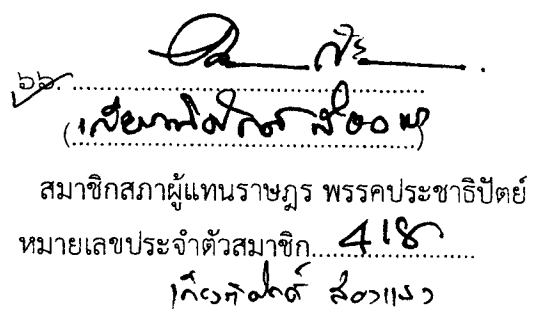 ๖๖.
(นายเกียรติศักดิ์ ส่องแสง)
สมาชิกสภาผู้แทนราษฎร พรรคประชาธิปัตย์
หมายเลขประจำตัวสมาชิก 418
เกียรติศักดิ์ ส่องแสง